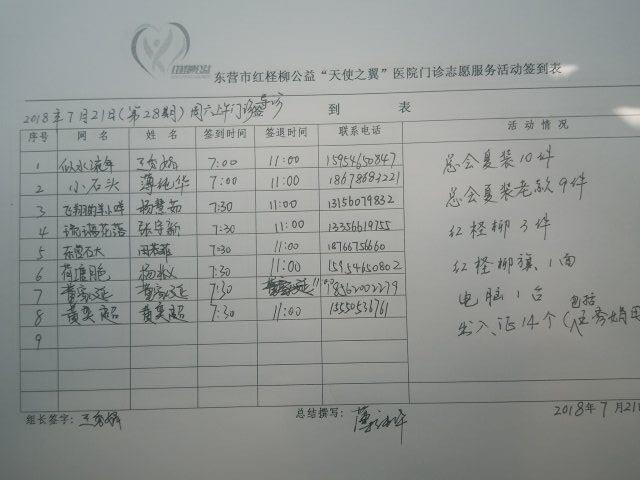 东营市红柽柳公益“天使之翼”医院门诊志愿服务活动签到表
2018年7月21日(第28期)周六上午门诊导诊
到 表
序号 网名 姓名 签到时间 签退时间 联系电话 活动情况
1 似水流年 7:00 11:00 15954650847
2 小石头 薄纯华 7:00 11:00 18678683221
3 飞翔的羊小咩 杨慧茹 7:30 11:00 13156079832
4 张宇新 7:30 11:00 13356619755
5 东营石大 7:30 11:00 18766756660
6 7:30 11:00 15954650802
7 董家延 董家延 7:30 11:00 8562002279
8 黄奕超 黄奕超 7:30 11:00 13550536761
9
总会夏装10件
总会夏装老款9件
红柽柳 3件
红柽柳旗1面
电脑1台
出入证14个(包括
组长签字:
总结撰写:
2018年7月21日